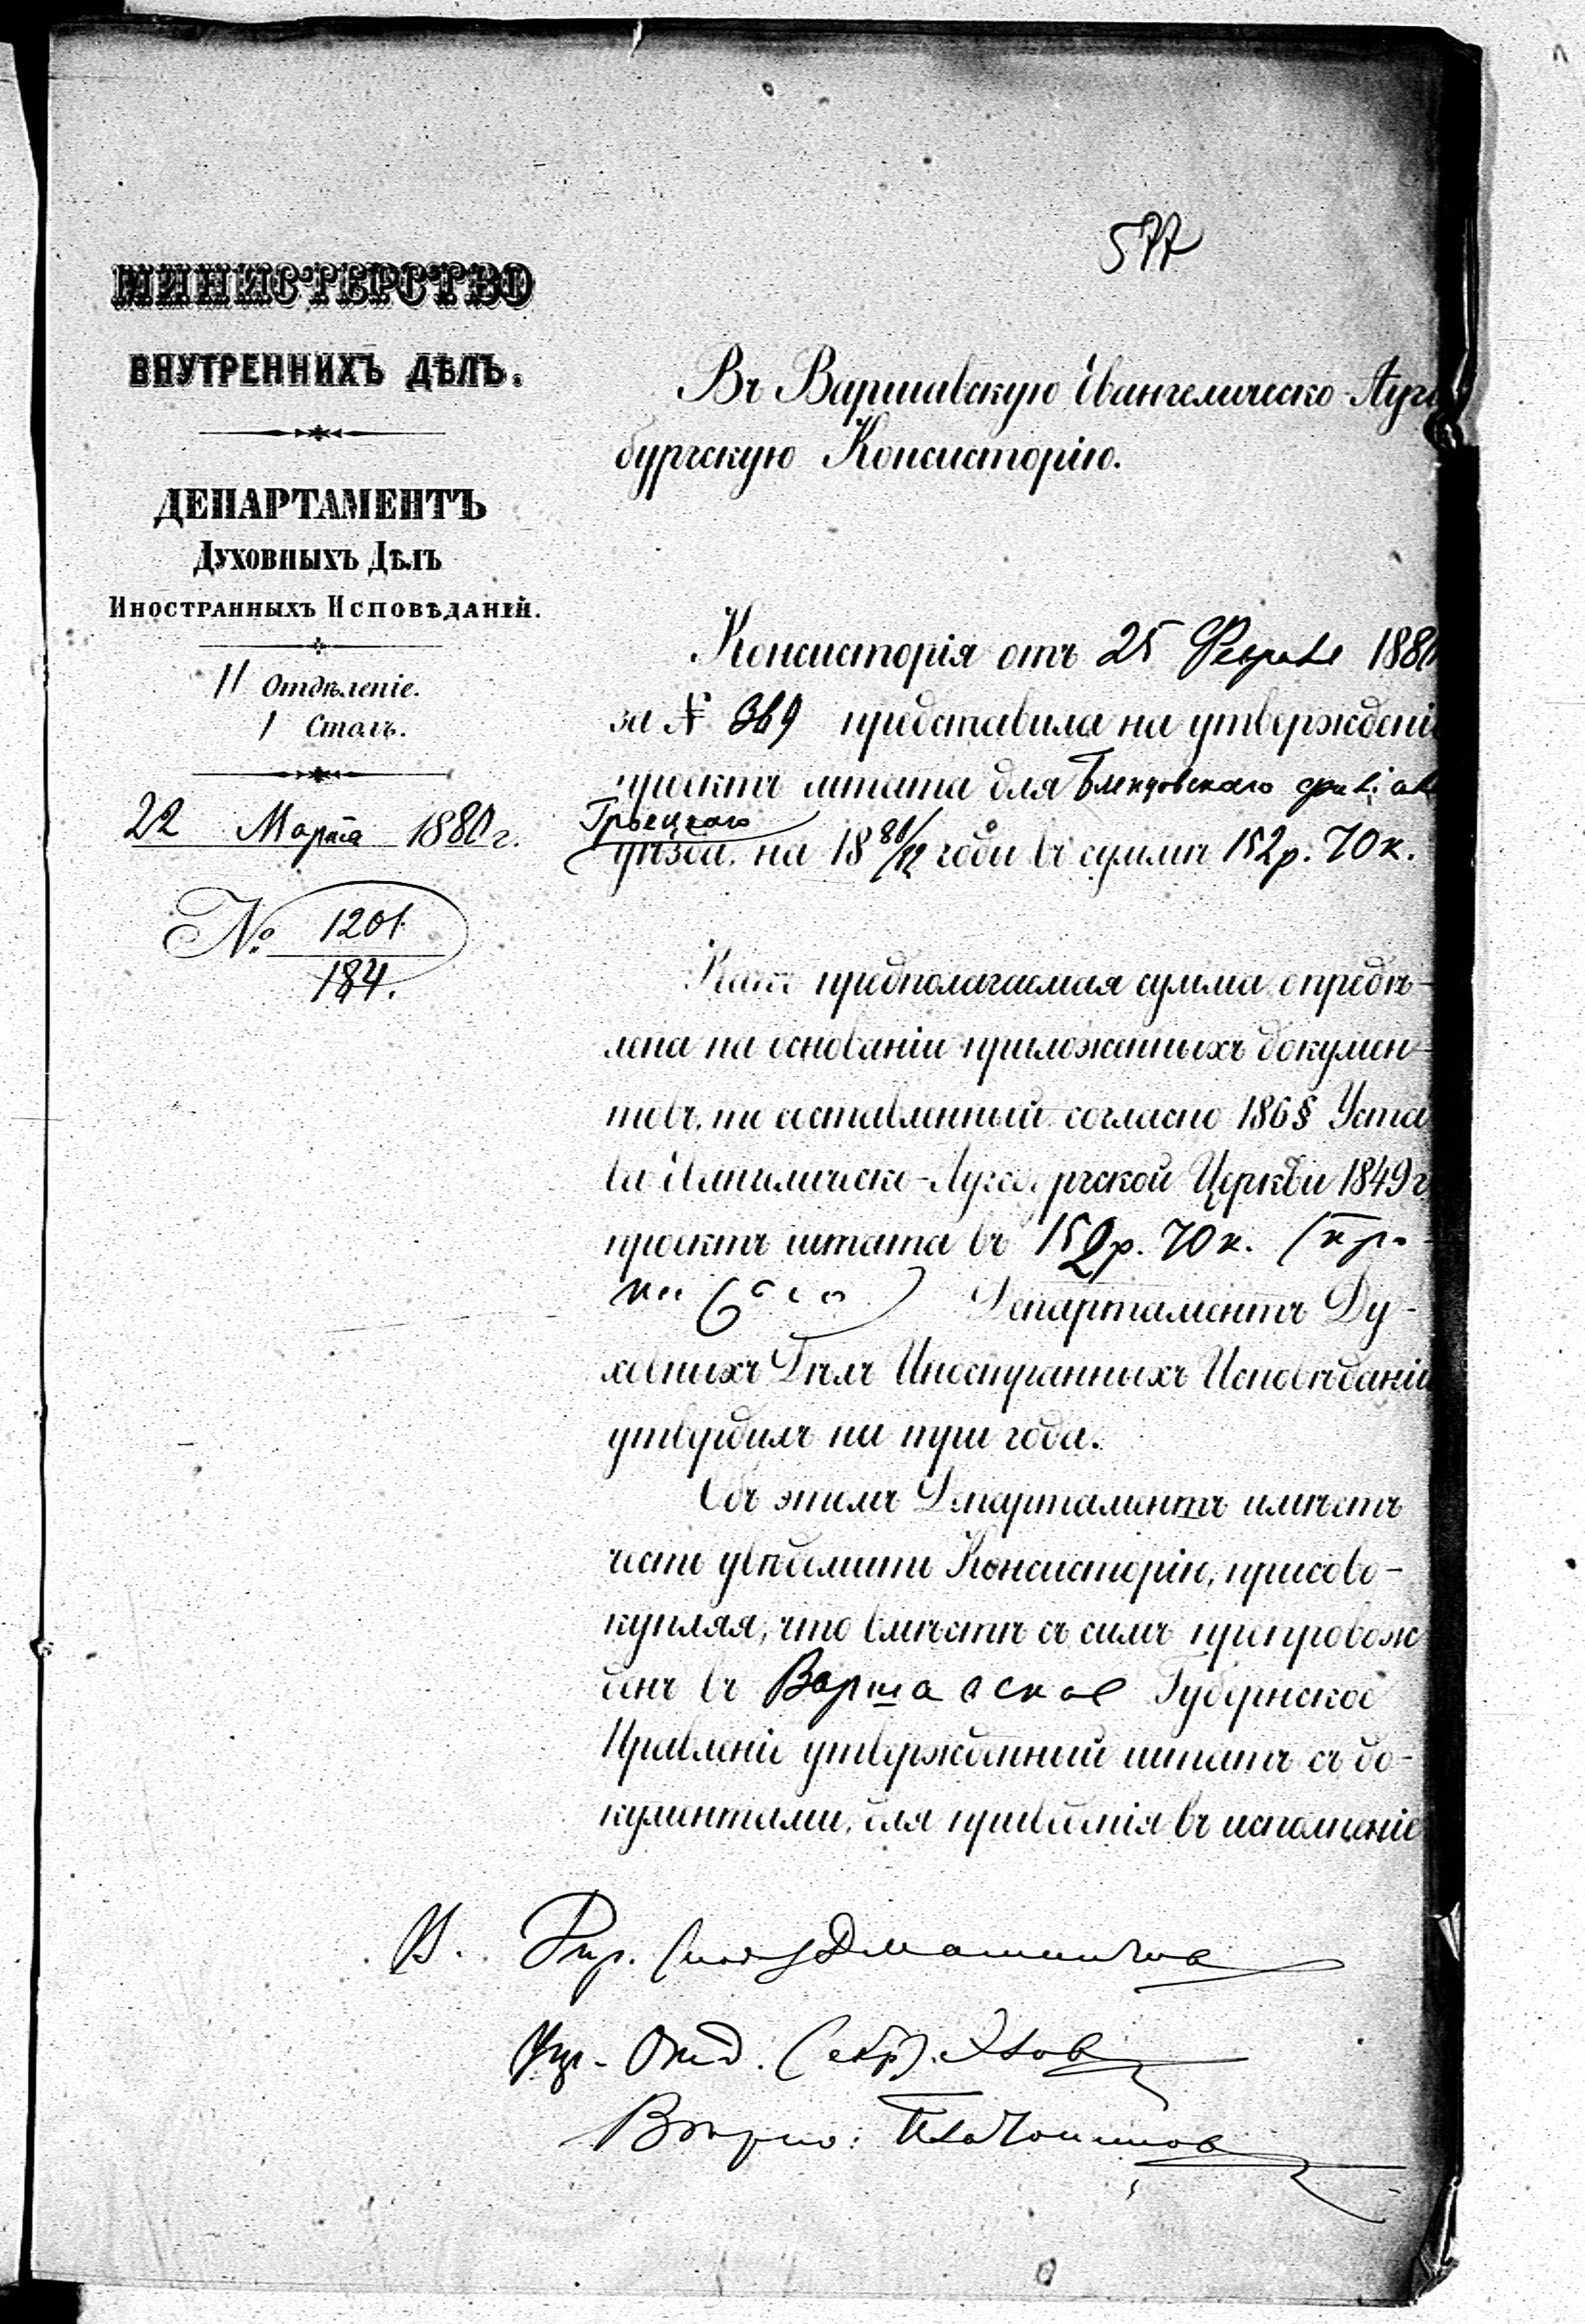 577
МИНИСТЕРСТВО
ВНУТРЕННИХЪ ДѢЛЪ.
ДЕПАРТАМЕНТЪ
Духовныхъ Дѣлъ
Иностранныхъ Исповѣданій.
II Отдѣленіе.
1 Столъ.
22 Марта 1880 г.
№ 1201
184.
Въ Варшавскую Евангелическо-Аугс
бургскую Консисторію.
Консисторія отъ 25 Февраля 1880
за № 369 представила на утвержденіе
проектъ штата для Блендовскаго филіала
Гроецкаго
уѣзда, на 18 80/82 годы въ суммѣ 152 р. 70 к.
Какъ предполагаемая сумма опредѣ-
лена на основаніи приложенныхъ докумен-
товъ, то составленный согласно 186 § Уста
ва Евангелическо-Аугсбургской Церкви 1849 г.
проектъ штата въ 152 р. 70 к.
Департаментъ Ду-
ховныхъ Дѣлъ Иностранныхъ Исповѣданій
утвердилъ на три года.
Объ этомъ Департаментъ имѣетъ
честь увѣдомить Консисторію, присово-
купляя, что вмѣстѣ съ симъ препровож
денъ въ Варшавское Губернское
Правленіе утвержденный штатъ съ до-
кументами, для приведенія въ исполненіе
Дир.
Упр. Отд.
Вѣрно: